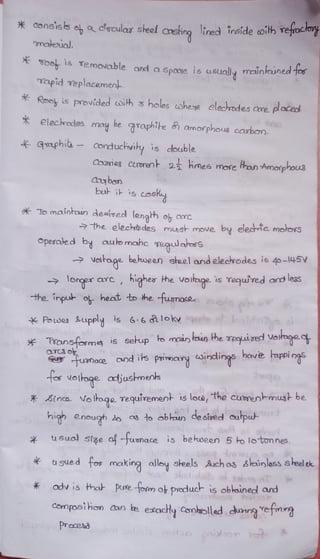 * consists of a circular steel casting lined inside with refractory
material.
* roof is removable and a spare is usually maintained for
rapid replacement
* Roof is provided with 3 holes where electrodes are placed
* electrodes may be graphite or amorphous carbon.
* Graphite - conductivity is double
Carries current 2½ times more than Amorphous
Carbon
but it is costly
* To maintain desired length of arc
→ the electrodes must move by electric motors
operated by automatic regulators
→ voltage between steel and electrodes is 40-145V
→ longer arc, higher the voltage is required and less
the input of heat to the furnace
* Power supply is 6.6 or 10kv
* Transformer is setup to maintain the required voltage of
arc of
furnace and its primary windings have tappings
for voltage adjustments
* Since voltage requirement is low, the current must be
high enough so as to obtain desired output
* usual size of furnace is between 5 to 10 tonnes.
* used for making alloy steels such as stainless steel etc
* adv is that pure form of product is obtained and
composition can be exactly controlled during refining
Process